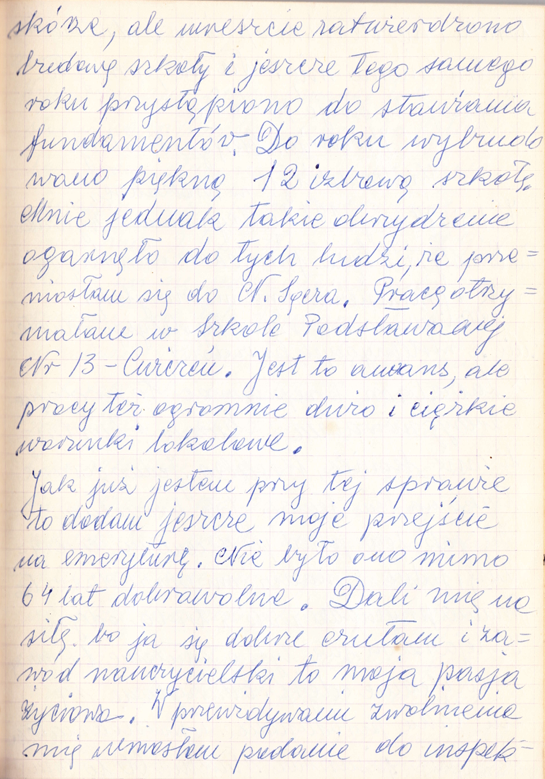 skórze, ale wreszcie zatwierdzono
budowę szkoły i jeszcze tego samego
roku przystąpiono do stawiania
fundamentów. Do roku wybudo
wano piękną 12 izbową szkołę.
Mnie jednak takie obrzydzenie
ogarnęło do tych ludzi, że prze=
niosłam się do N. Sącza. Pracę otrzy=
małam w Szkole Podstawowej
Nr 13 - Ćwiczeń. Jest to awans, ale
pracy też ogromnie dużo i ciężkie
warunki lokalowe.
Jak już jestem przy tej sprawie
to dodam jeszcze moje przejście
na emeryturę. Nie było ono mimo
64 lat dobrowolne. Dali mię na
siłę. bo ja się dobrze czułam i za=
wód nauczycielski to moja pasja
życiowa. W przewidywaniu zwolnienia
mię wniosłam podanie do inspek=